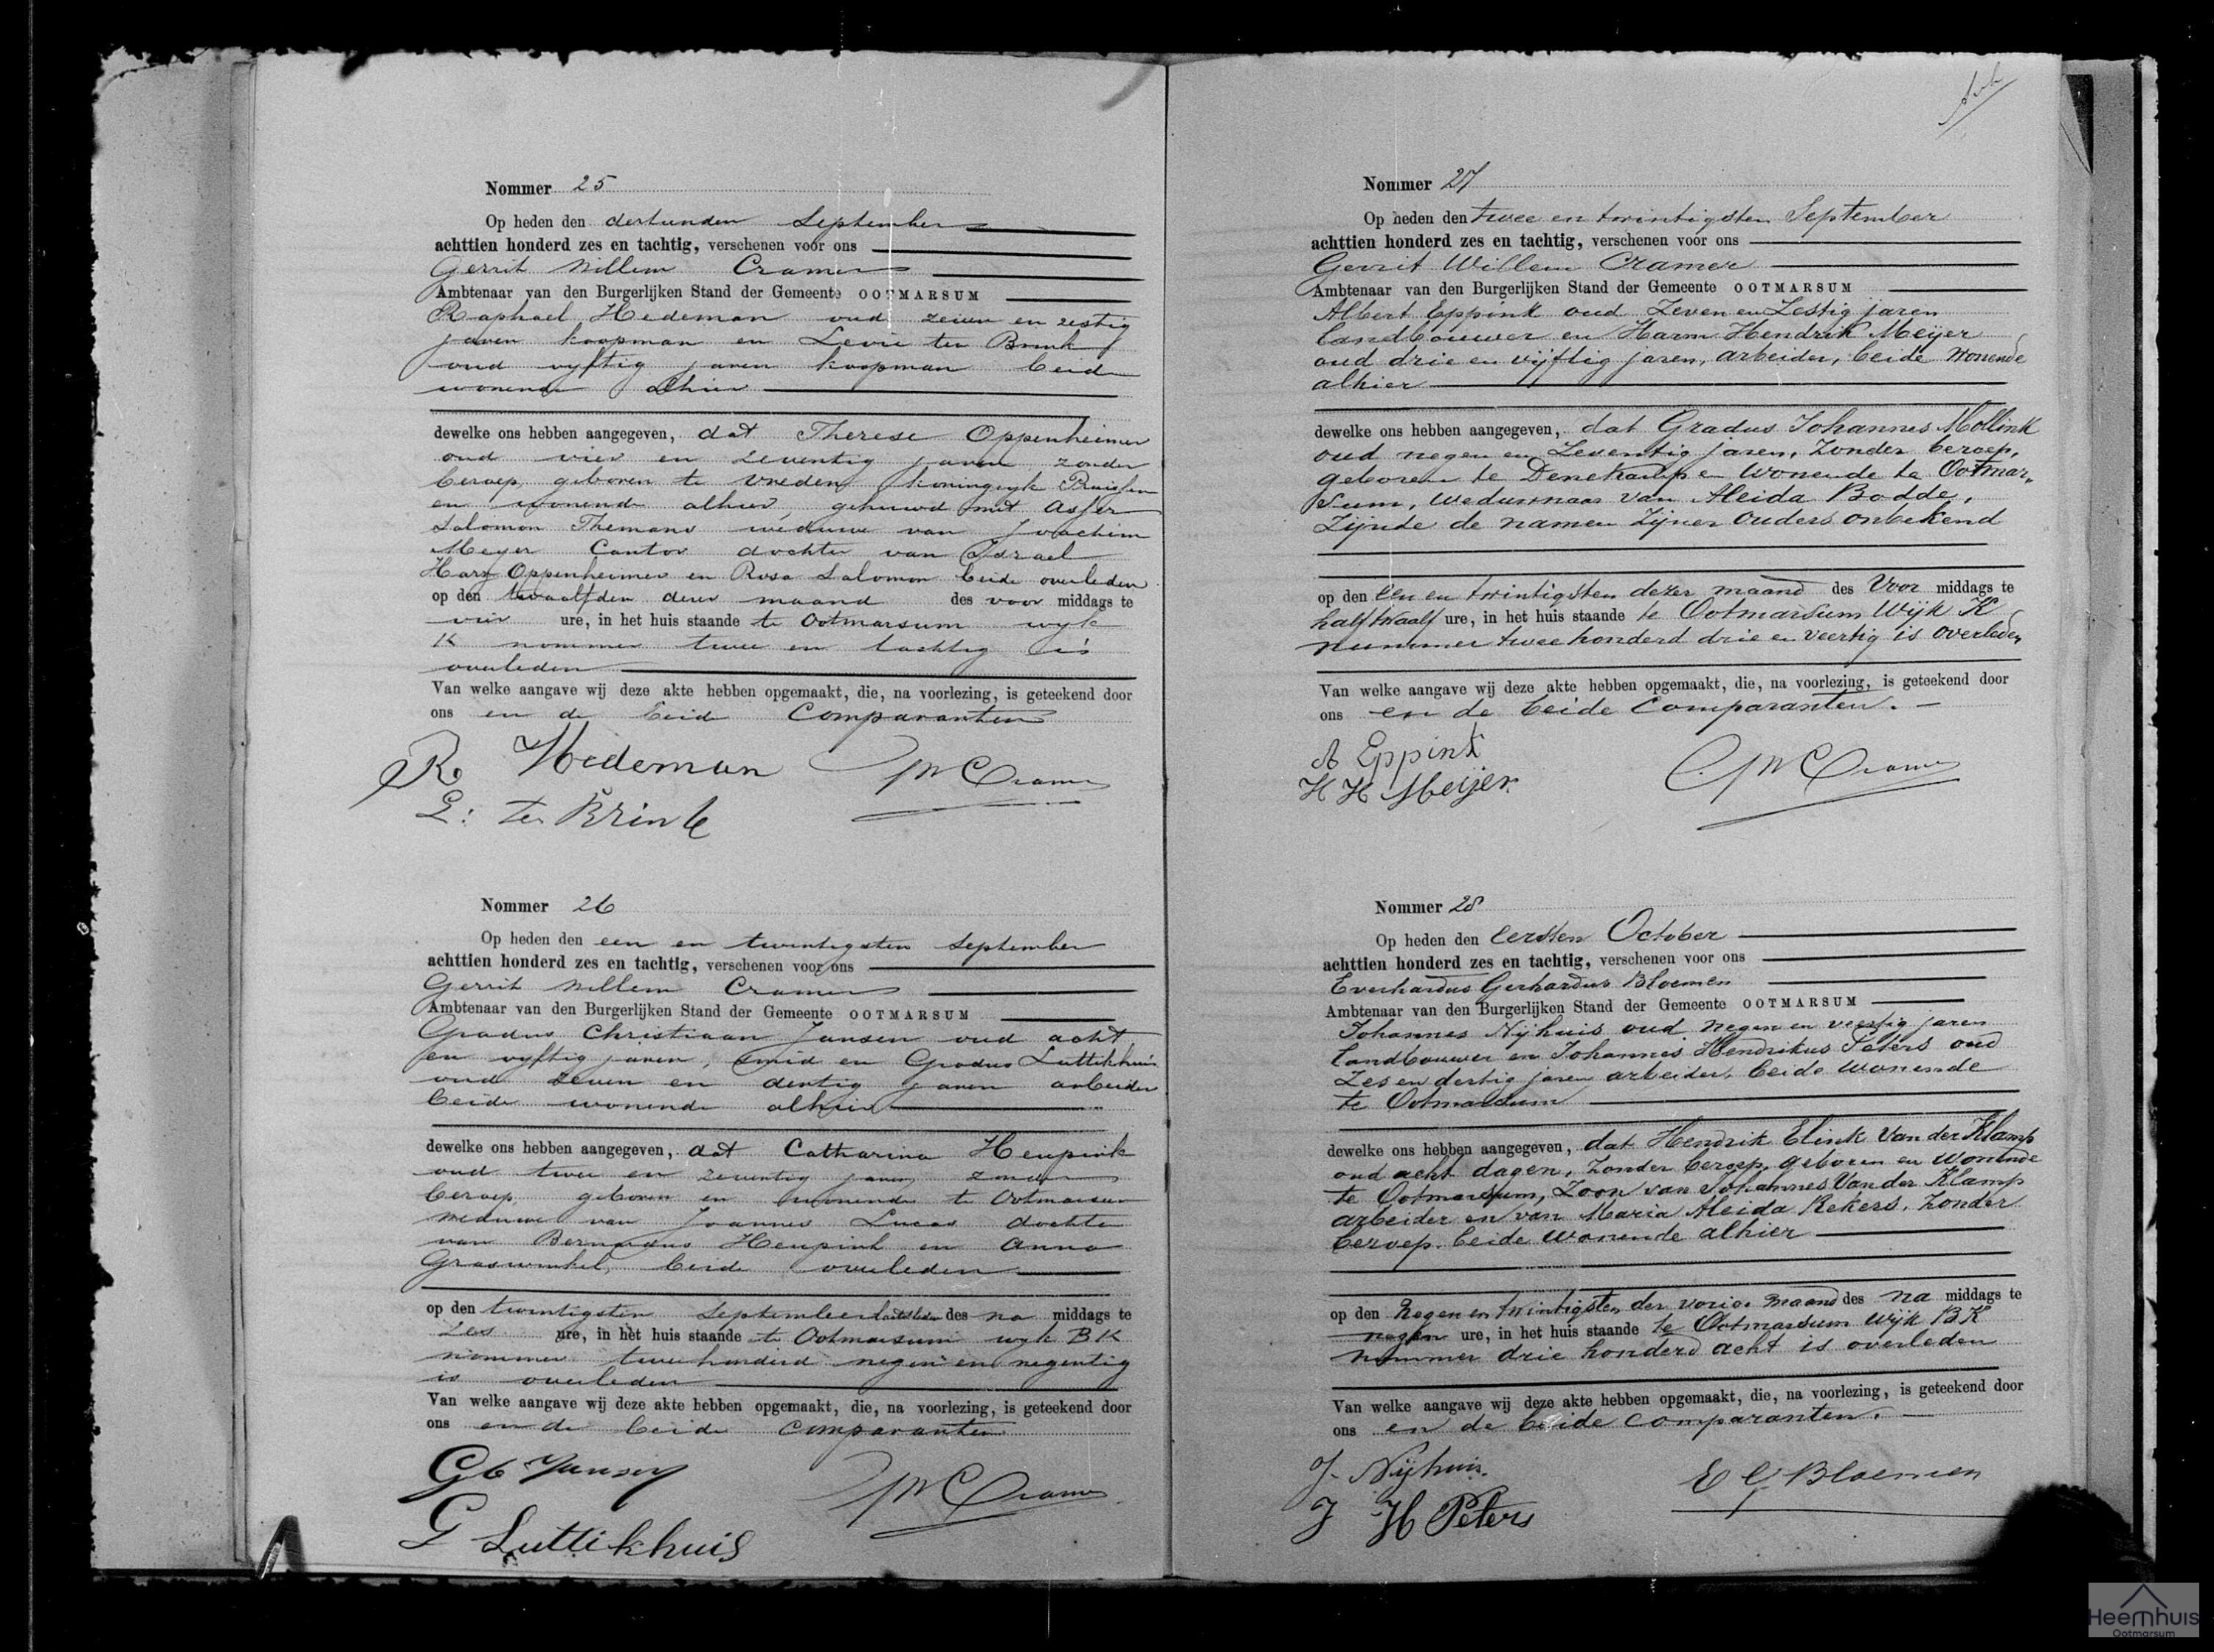 Nommer 25
Op heden den dertienden September
achttien honderd zes en tachtig, verschenen voor ons
Gerrit Willem Cramer
Ambtenaar van den Burgerlijken Stand der Gemeente OOTMARSUM
Raphael Hedeman oud zeven en zestig
jaren koopman en Levie ten Brink
oud vyftig jaren koopman beide
wonende alhier
dewelke ons hebben aangegeven, dat Therese Oppenheimer
oud vier en zeventig jaren zonder
beroep, geboren te Vreden koningryk Pruissen
en wonende alhier, gehuwd met Asser
Salomon Themans weduwe van Joachim
Meyer Cantor dochter van Israel
Harz Oppenheimer en Rosa Salomon beide overleden
op den twaalfden dezer maand des voor middags te
vier ure, in het huis staande te Ootmarsum wyk
K nommer twee en tachtig is
overleden
Van welke aangave wij deze akte hebben opgemaakt, die, na voorlezing, is geteekend door
ons en de beide Comparanten
R. Hedeman GW Cramer
L: ten Brink
Nommer 26
Op heden den een en twintigsten September
achttien honderd zes en tachtig, verschenen voor ons
Gerrit Willem Cramer
Ambtenaar van den Burgerlijken Stand der Gemeente OOTMARSUM
Gradus Christiaan Jansen oud acht
en vyftig jaren, smid en Gradus Luttikhuis
oud zeven en dertig jaren arbeider
beide wonende alhier
dewelke ons hebben aangegeven, dat Catharina Heupink
oud twee en zeventig jaren zonder
beroep, geboren en wonende te Ootmarsum
weduwe van Joannes Lucas dochter
van Bernardus Heupink en Anna
Graswinkel, beide overleden
op den twintigsten September des na middags te
zes ure, in het huis staande te Ootmarsum wyk BK
nommer tweehonderd negen en negentig
is overleden
Van welke aangave wij deze akte hebben opgemaakt, die, na voorlezing, is geteekend door
ons en de beide Comparanten
GC Jansen GW Cramer
G Luttikhuis
Nommer 27
Op heden den twee en twintigsten September
achttien honderd zes en tachtig, verschenen voor ons
Gerrit Willem Cramer
Ambtenaar van den Burgerlijken Stand der Gemeente OOTMARSUM
Albert Eppink oud Zeven en Zestig jaren
landbouwer en Harm Hendrik Meijer
oud drie en vijftig jaren, arbeider, beide Wonende
alhier
dewelke ons hebben aangegeven, dat Gradus Johannes Mollink
oud negen en Zeventig jaren, Zonder beroep,
geboren te Denekamp en Wonende te Ootmar„
sum, Weduwnaar van Aleida Bodde,
Zijnde de namen Zijner Ouders onbekend
op den een en twintigsten dezer maand des Voor middags te
half twaalf ure, in het huis staande te Ootmarsum Wijk K
nummer twee honderd drie en veertig is overleden
Van welke aangave wij deze akte hebben opgemaakt, die, na voorlezing, is geteekend door
ons en de beide Comparanten. -
A Eppink GW Cramer
H H Meijer
Nommer 28
Op heden den eersten October
achttien honderd zes en tachtig, verschenen voor ons
Everhardus Gerhardus Bloemen
Ambtenaar van den Burgerlijken Stand der Gemeente OOTMARSUM
Johannes Nijhuis oud negen en veertig jaren
landbouwer en Johannes Hendrikus Peters oud
Zes en dertig jaren arbeider, beide Wonende
te Ootmarsum
dewelke ons hebben aangegeven, dat Hendrik Elink Van der Klamp
oud acht dagen, Zonder beroep, geboren en Wonende
te Ootmarsum, Zoon van Johannes Van der Klamp
arbeider en van Maria Aleida Rekers, Zonder
beroep, beide Wonende alhier
op den Negen en twintigsten der vorige maand des na middags te
negen ure, in het huis staande te Ootmarsum Wijk BK
nommer drie honderd acht is overleden
Van welke aangave wij deze akte hebben opgemaakt, die, na voorlezing, is geteekend door
ons en de beide comparanten. -
J. Nijhuis. E G Bloemen
J H Peters
Heemhuis
Ootmarsum